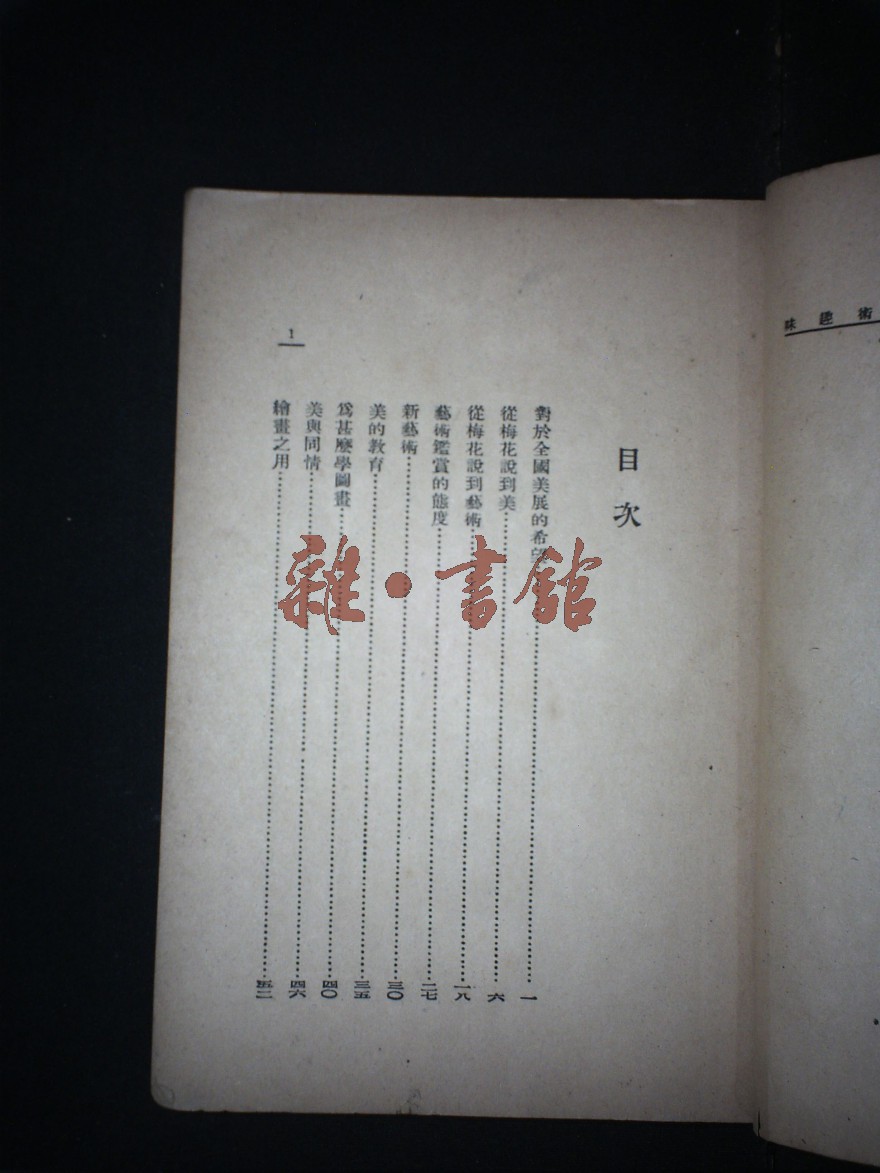 術 趣 味
目次
對於全國美展的希望……一
從梅花說到美……六
從梅花說到藝術……一八
藝術鑑賞的態度……二七
新藝術……三〇
美的教育……三五
爲甚麼學圖畫……四〇
美與同情……四六
繪畫之用……五二
1
雜·書館